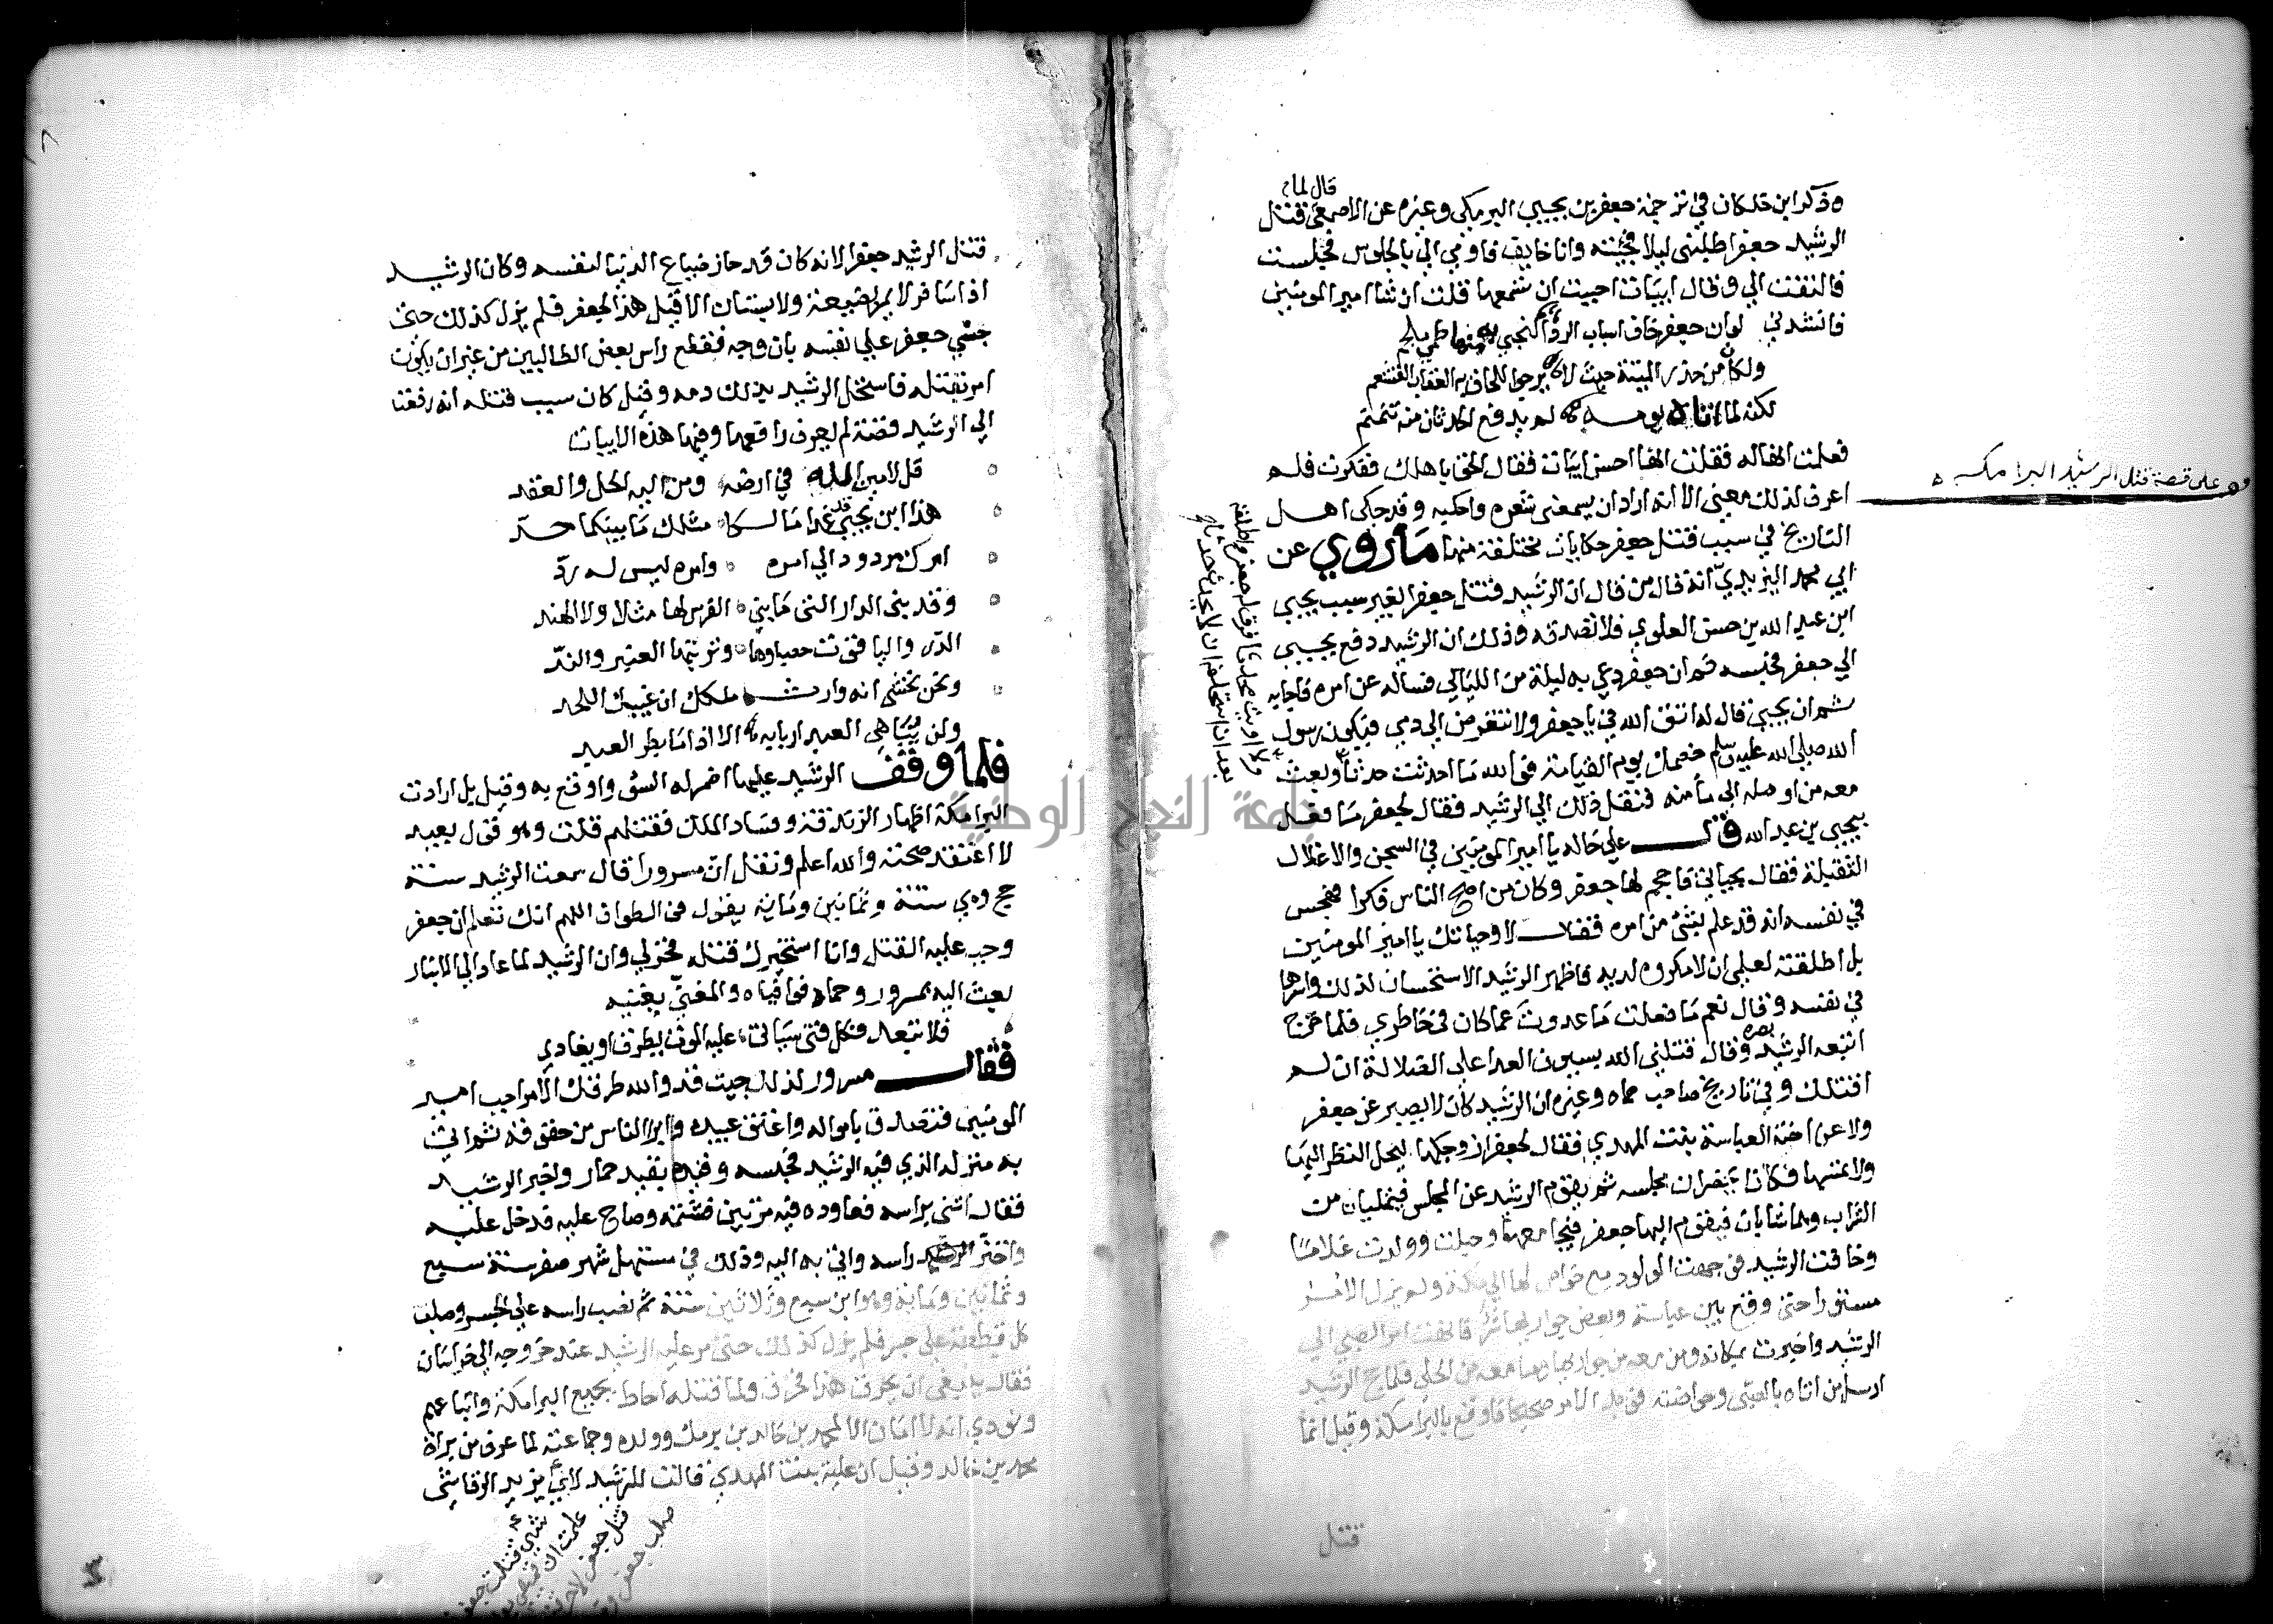 قال لما
وذكر ابن خلكان في ترجمة جعفر بن يحيى البرمكي وغيره عن الاصمعي قتل
الرشيد جعفرا طلبني ليلا فجئته وانا خايف فاومي الي بالجلوس فجلست
فالتفت الي وقال ابيات احببت ان تسمعها قلت ان شا امير المومنين
فانشدني لوان جعفر خاف اسباب الردا لنجى به منها طمر ملجم
ولكان من حذر المنية حيث لا يرجوا للحاق به العقاب القشعم
لكنه لما اتاه يومه لم يدفع الحدثان منه منجم
فعلمت انها له فقلت انها احسن ابيات فقال الحق باهلك ففكرت فلم
اعرف لذلك معنى الا انه اراد ان يسمعني شعره واحكيه وقد حكى اهل
التاريخ في سبب قتل جعفر حكايات مختلفة منها ما روي عن
ابي محمد اليزيدي انه قال من قال ان الرشيد قتل جعفرا لغير سبب يحيى
ابن عبد الله بن حسن العلوي فلا تصدقه وذلك ان الرشيد دفع يحيى
الي جعفر فحبسه ثم ان جعفر دعي به ليلة من الليالي فساله عن امره فاجابه
ثم ان يحيى قال له اتق الله في يا جعفر ولا تتعرض الي دمي فيكون رسول
الله صلى الله عليه وسلم خصمك يوم القيامة فوالله ما احدثت حدثا وبعث
معه من اوصله الي مأمنه فنقل ذلك الي الرشيد فقال لجعفر ما فعل
يحيى بن عبد الله قال على حاله يا امير المومنين في السجن والاغلال
الثقيلة فقال بحياتي فاحجم لها جعفر وكان من اصح الناس فكرا فهجس
في نفسه انه قد علم بشئ من امره فقال لا وحياتك يا امير المومنين
بل اطلقته لعلمي ان لا مكروه لديه فاظهر الرشيد الاستحسان لذلك واسرها
في نفسه وقال نعم ما فعلت ما عدوت عما كان في خاطري فلما خرج
اتبعه الرشيد بصره وقال قتلني الله بسيون العدا على الضلالة ان لم
اقتلك وفي تاريخ صاحب حماه وغيره ان الرشيد كان لا يصبر عن جعفر
ولا عن اخته العباسة بنت المهدي فقال لجعفر ازوجكها ليحل النظر اليها
ولا تمسها فكانا يحضران مجلسه ثم يقوم الرشيد عن المجلس فيمليان من
الشراب وهما شابان فيقوم اليها جعفر فيجامعها وحبلت وولدت غلاما
وخافت الرشيد فوجهت المولود مع خواص لها الي مكة ولم يزل الامر
مستورا حتى وقع بين عباسة وبعض جواريها شر فانهت امر الصبي الي
الرشيد واخبرت بمكانه ومن معه من جواريها وما معه من الحلي فلما حج الرشيد
ارسل من اتاه بالصبي وحواضنه فوجد الامر صحيحا فاوقع بالبرامكة وقيل انما
قتل
قف على قصة قتل الرشيد البرامكة
ولا اويت محدثا فرق له جعفر واطلقه
بعد ان استحلفه ان لا يحدث حدثا
قتل الرشيد جعفرا لانه كان قد حاز ضياع الدنيا لنفسه وكان الرشيد
اذا سافر لا يمر بضيعة ولا بستان الا قيل هذا لجعفر فلم يزل كذلك حتى
جنى جعفر على نفسه بان وجه فقطع راس بعض الطالبيين من غير ان يكون
امر بقتله فاستحل الرشيد بذلك دمه وقيل كان سبب قتله انه رفعت
الي الرشيد قصة لم يعرف رافعها وفيها هذه الابيات
قل لامين الله في ارضه ومن اليه الحل والعقد
هذا ابن يحيى قد غدا مالكا مثلك ما بينكما حد
امرك مردود الي امره وامره ليس له رد
وقد بنى الدار التي ما بني الفرس لها مثلا ولا الهند
الدر والياقوت حصباوها وتربتها العنبر والند
ونحن نخشى انه وارث ملكك ان غيبك اللحد
ولن يباهي العبد اربابه الا اذا ما بطر العبد
فلما وقف الرشيد عليها اضمر له السؤ واوقع به وقيل بل ارادت
البرامكة اظهار الزندقة وفساد الملك فقتلهم قلت وهو قول بعيد
لا اعتقد صحته والله اعلم ونقل ان مسرورا قال سمعت الرشيد سنة
حج وهي ستة وثمانين ومايه يقول في الطواف اللهم انك تعلم ان جعفر
وجب عليه القتل وانا استخيرك قتله فخر لي وان الرشيد لما عاد الي الانبار
بعث اليه بمسرور وحماد فوافياه والمغني يغنيه
فلا تبعد فكل فتى سياتي عليه الموت يطرق او يغادي
فقال مسرور لذلك جيت قد والله طرقك الامر اجب امير
المومنين فتصدق بامواله واعتق عبيده وابرا الناس من حقوقه ثم اتى
به منزله الذي فيه الرشيد فحبسه وقيده بقيد حمار واخبر الرشيد
فقال اتني براسه فعاوده فيه مرتين فشتمه وصاح عليه فدخل عليه
واختز راسه واتي به اليه وذلك في مستهل شهر صفر سنة سبع
وثمانين ومايه وهو ابن سبع وثلاثين سنة ثم نصب راسه على الجسر وصلب
كل قطعة على جسر فلم يزل كذلك حتى مر عليه الرشيد عند خروجه الي خراسان
فقال ينبغي ان يحرق هذا فحرق ولما قتله احاط بجميع البرامكة واتباعهم
ونودي انه لا امان الا لمحمد بن خالد بن برمك وولده وجماعته لما عرف من براة
محمد بن خالد وقيل ان علية بنت المهدي قالت للرشيد لاي يزيد الرقاشي
شي قتلت جعفر
علمت ان قميصي
قتل جعفر
صلب جعفر